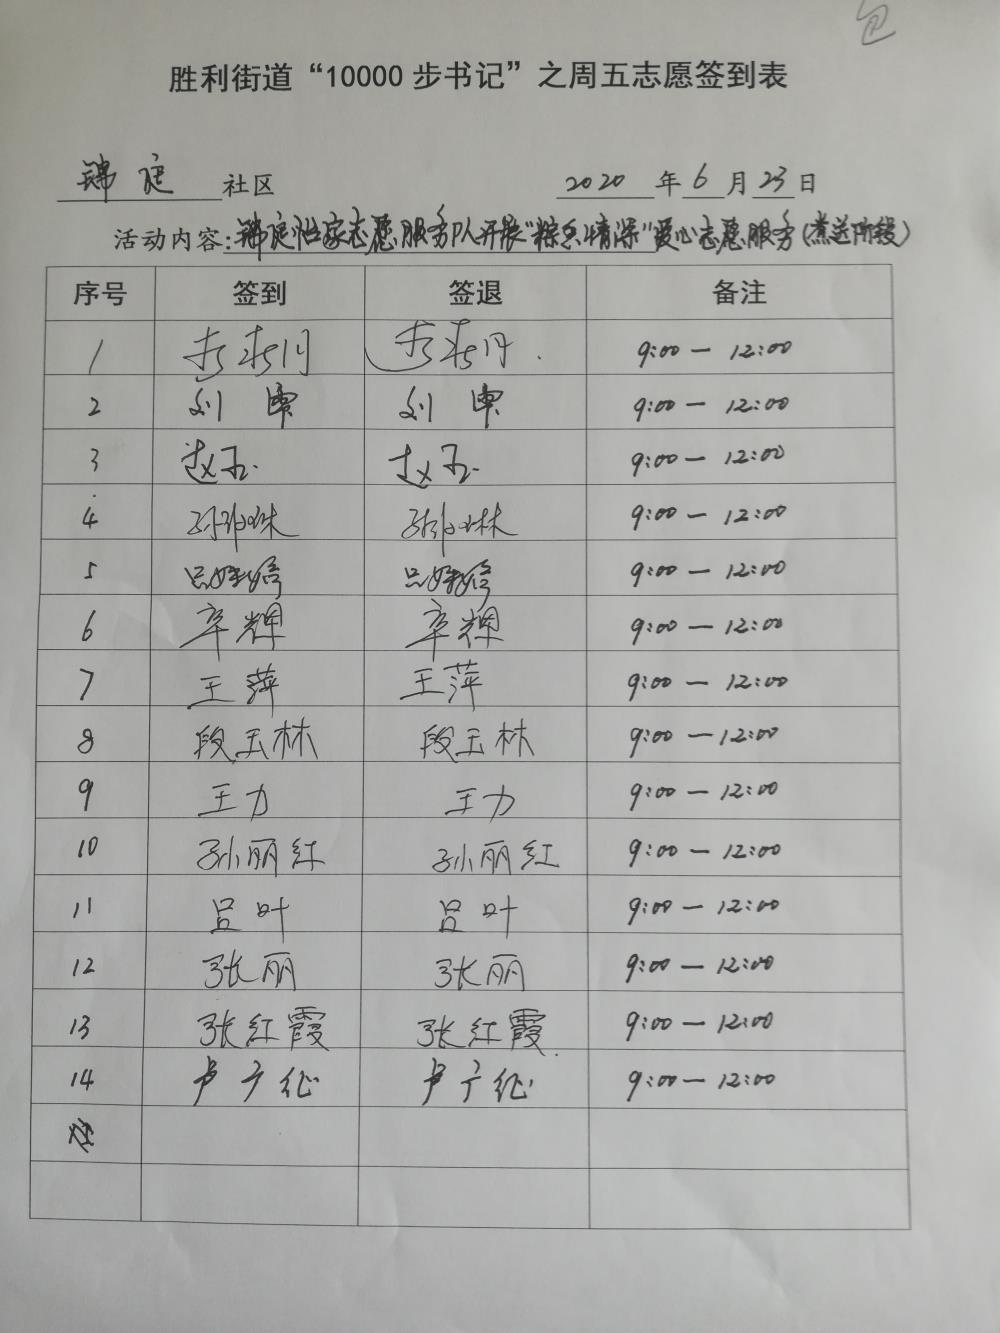 包
胜利街道“10000步书记”之周五志愿签到表
锦庭社区 2020年6月23日
活动内容:锦庭怡家志愿服务队开展“粽香情深”爱心志愿服务(煮送阶段)
序号 签到 签退 备注
1 9:00—12:00
2 刘 刘 9:00—12:00
3 赵玉 赵玉 9:00—12:00
4 孙 孙 9:00—12:00
5 吕婷婷 吕婷婷 9:00—12:00
6 辛辉 辛辉 9:00—12:00
7 王萍 王萍 9:00—12:00
8 段玉林 段玉林 9:00—12:00
9 王力 王力 9:00—12:00
10 孙丽红 孙丽红 9:00—12:00
11 吕叶 吕叶 9:00—12:00
12 张丽 张丽 9:00—12:00
13 张红霞 张红霞 9:00—12:00
14 卢广红 卢广红 9:00—12:00